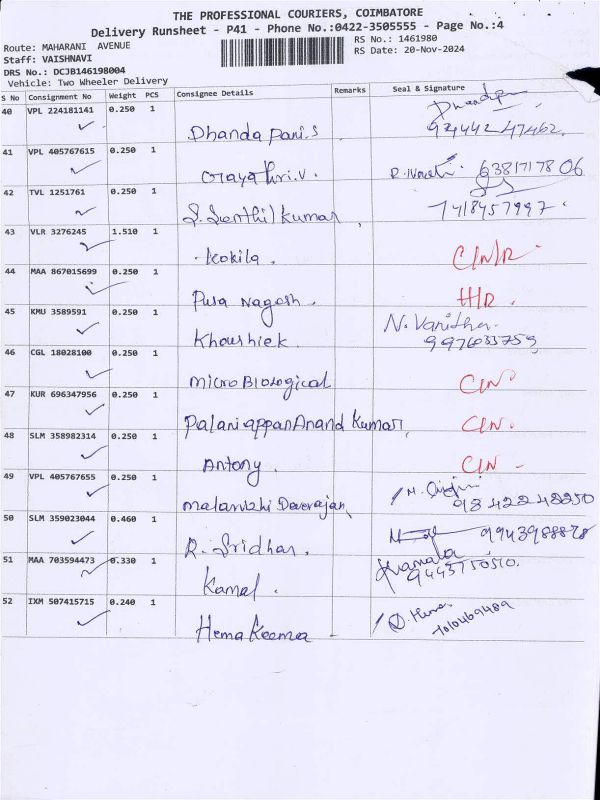 THE PROFESSIONAL COURIERS, COIMBATORE
Delivery Runsheet - P41 - Phone No.:0422-3505555 - Page No.:4
Route: MAHARANI AVENUE
RS No.: 1461980
Staff: VAISHNAVI
RS Date: 20-Nov-2024
DRS No.: DCJB146198004
Vehicle: Two Wheeler Delivery
S No Consignment No Weight PCS Consignee Details Remarks Seal & Signature
40 VPL 224181141 0.250 1 Dhandapani.S 94442 47462.
41 VPL 405767615 0.250 1 Gayathri.V. 6381717806
42 TVL 1251761 0.250 1 S. Senthil kumar 7418457997.
43 VLR 3276245 1.510 1 Kokila. C/N/R
44 MAA 867015699 0.250 1 Puja Nagesh. H/D.
45 KMU 3589591 0.250 1 Khoushiek. N. Vanitha. 9976035759
46 CGL 18028100 0.250 1 Micro Biological C/N
47 KUR 696347956 0.250 1 PalaniappanAnand Kumar, C/N.
48 SLM 358982314 0.250 1 Antony. C/N -
49 VPL 405767655 0.250 1 Malarvizhi Deverajan 9342248250
50 SLM 359023044 0.460 1 R. Sridhar. 9943988878
51 MAA 703594473 0.330 1 Kamal. Kamala 9443750510.
52 IXM 507415715 0.240 1 Hema Keema 7010469489